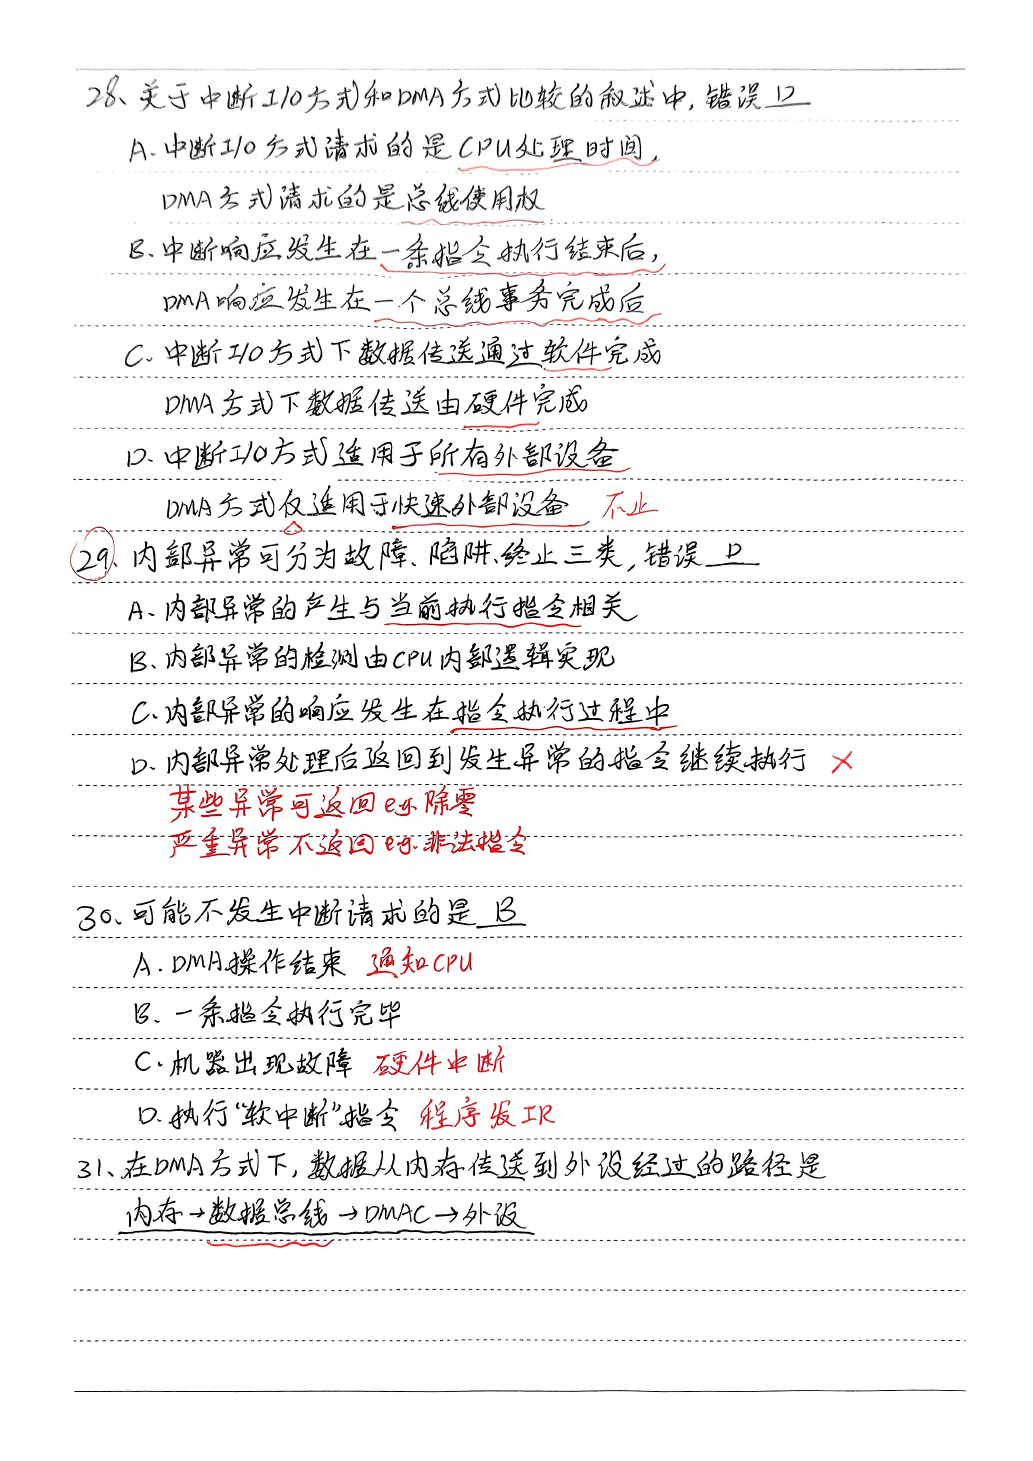 28、关于中断I/O方式和DMA方式比较的叙述中,错误 D
A.中断I/O方式请求的是CPU处理时间,
DMA方式请求的是总线使用权
B.中断响应发生在一条指令执行结束后,
DMA响应发生在一个总线事务完成后
C.中断I/O方式下数据传送通过软件完成
DMA方式下数据传送由硬件完成
D.中断I/O方式适用于所有外部设备
DMA方式仅适用于快速外部设备 不止
29、内部异常可分为故障、陷阱、终止三类,错误 D
A、内部异常的产生与当前执行指令相关
B、内部异常的检测由CPU内部逻辑实现
C、内部异常的响应发生在指令执行过程中
D、内部异常处理后返回到发生异常的指令继续执行 ×
某些异常可返回e.g.除零
严重异常不返回e.g.非法指令
30、可能不发生中断请求的是 B
A.DMA操作结束 通知CPU
B、一条指令执行完毕
C.机器出现故障 硬件中断
D.执行“软中断”指令 程序发IR
31、在DMA方式下,数据从内存传送到外设经过的路径是
内存→数据总线→DMAC→外设